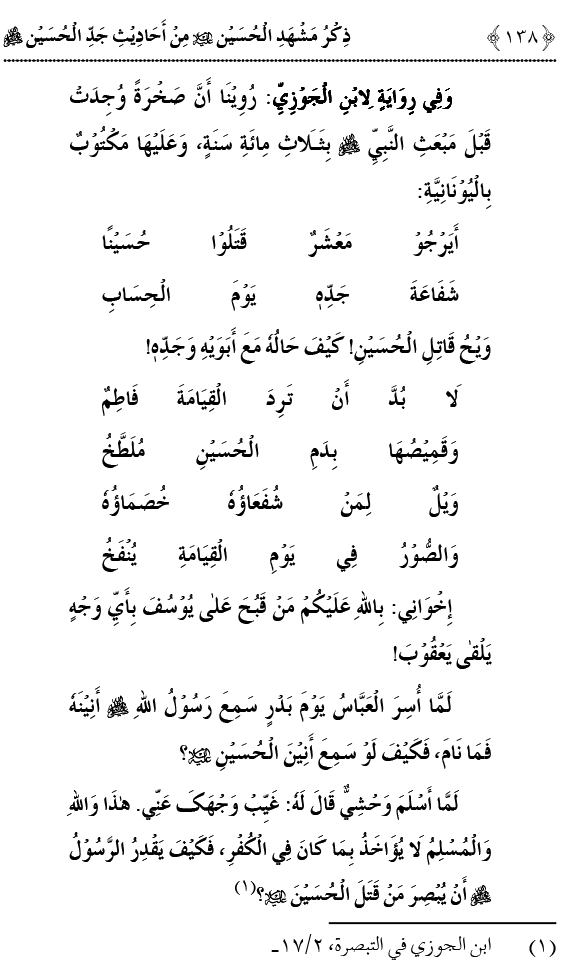 ﴿١٣٨﴾ ذِكْرُ مَشْهَدِ الْحُسَيْنِ مِنْ أَحَادِيْثِ جَدِّ الْحُسَيْنِ ﷺ
وَفِي رِوَايَةٍ لِابْنِ الْجَوْزِيِّ: رُوِيْنَا أَنَّ صَخْرَةً وُجِدَتْ
قَبْلَ مَبْعَثِ النَّبِيِّ ﷺ بِثَلَاثِ مِائَةِ سَنَةٍ، وَعَلَيْهَا مَكْتُوْبٌ
بِالْيُوْنَانِيَّةِ:
أَيَرْجُوْ مَعْشَرٌ قَتَلُوْا حُسَيْنًا
شَفَاعَةَ جَدِّهٖ يَوْمَ الْحِسَابِ
وَيْحُ قَاتِلِ الْحُسَيْنِ! كَيْفَ حَالُهٗ مَعَ أَبَوَيْهِ وَجَدِّهٖ!
لَا بُدَّ أَنْ تَرِدَ الْقِيَامَةَ فَاطِمٌ
وَقَمِيْصُهَا بِدَمِ الْحُسَيْنِ مُلَطَّخُ
وَيْلٌ لِمَنْ شُفَعَاؤُهٗ خُصَمَاؤُهٗ
وَالصُّوْرُ فِي يَوْمِ الْقِيَامَةِ يُنْفَخُ
إِخْوَانِي: بِاللهِ عَلَيْكُمْ مَنْ قَبُحَ عَلٰى يُوْسُفَ بِأَيِّ وَجْهٍ
يَلْقٰى يَعْقُوْبَ!
لَمَّا أُسِرَ الْعَبَّاسُ يَوْمَ بَدْرٍ سَمِعَ رَسُوْلُ اللهِ ﷺ أَنِيْنَهٗ
فَمَا نَامَ، فَكَيْفَ لَوْ سَمِعَ أَنِيْنَ الْحُسَيْنِ؟
لَمَّا أَسْلَمَ وَحْشِيٌّ قَالَ لَهٗ: غَيِّبْ وَجْهَكَ عَنِّي. هٰذَا وَاللهِ
وَالْمُسْلِمُ لَا يُؤَاخَذُ بِمَا كَانَ فِي الْكُفْرِ، فَكَيْفَ يَقْدِرُ الرَّسُوْلُ
ﷺ أَنْ يُبْصِرَ مَنْ قَتَلَ الْحُسَيْنَ؟(١)
(١) ابن الجوزي في التبصرة، ٢/١٧ـ